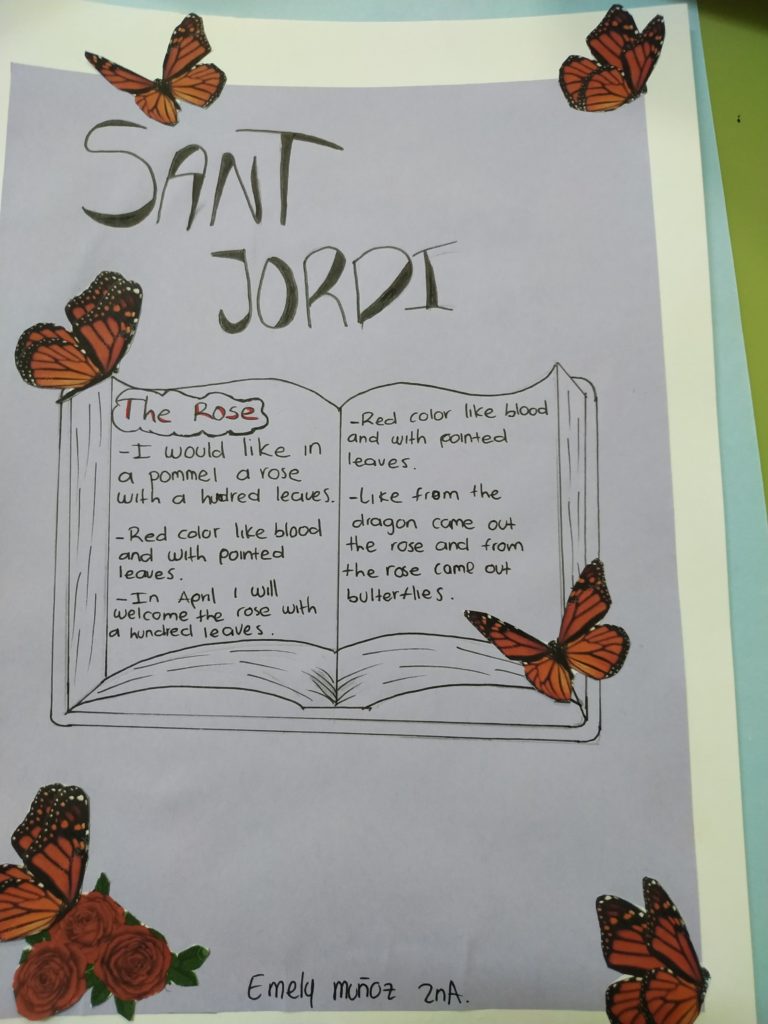 SANT
JORDI
The Rose
-I would like in
a pommel a rose
with a hudred leaves.
-Red color like blood
and with pointed
leaves.
-In April I will
welcome the rose with
a hundred leaves.
-Red color like blood
and with pointed
leaves.
-Like from the
dragon came out
the rose and from
the rose came out
butterflies.
Emely muñoz 2nA.